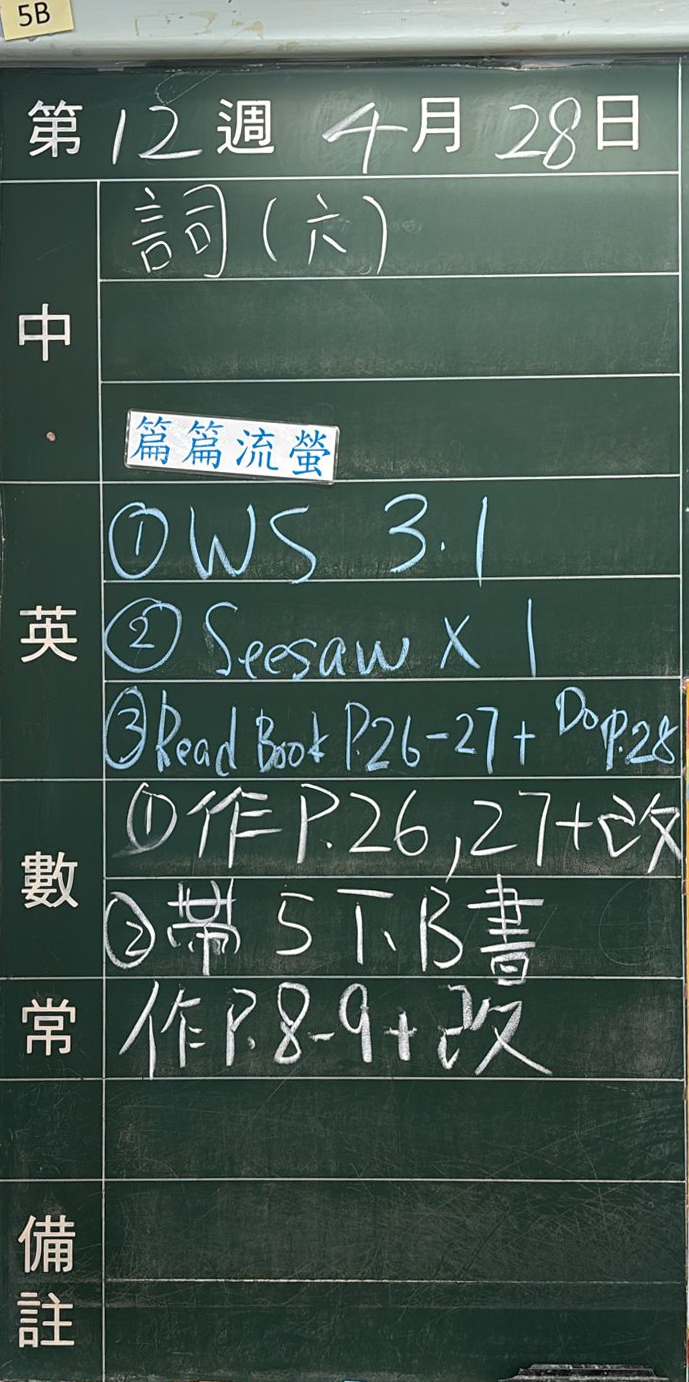 5B
第12週 4月28日
中
詞(六)
篇篇流螢
英
①WS 3.1
②Seesaw X 1
③Read Book P.26-27+ Do P.28
數
①作P.26,27+改
②帶5下B書
常
作P.8-9+改
備註